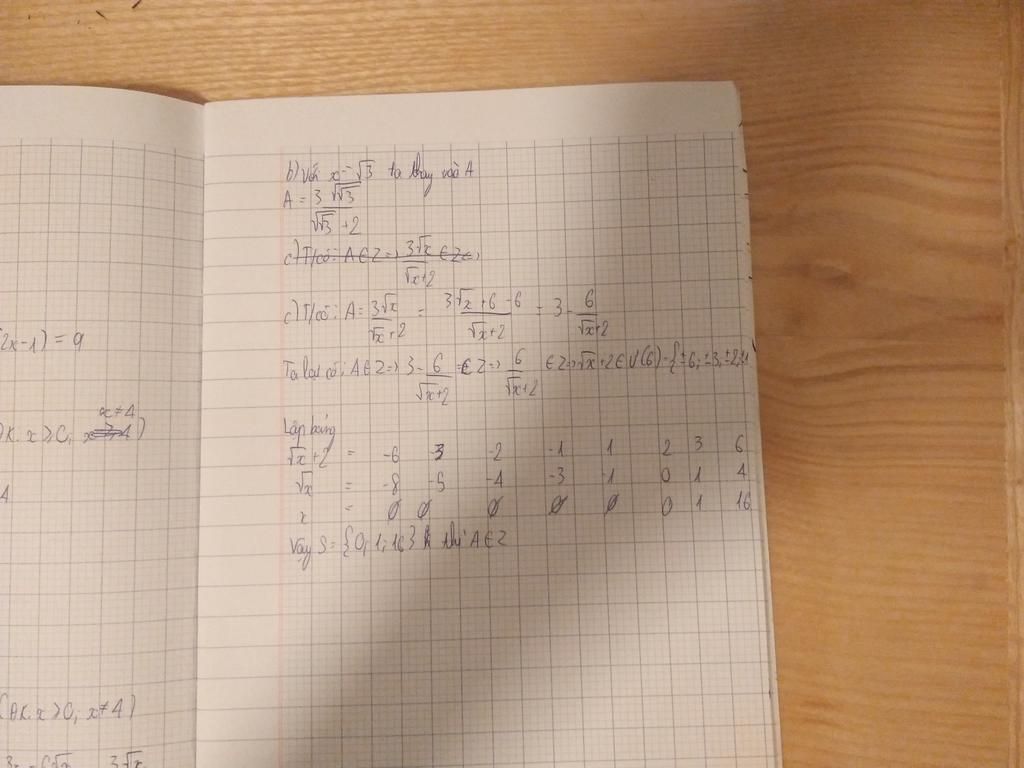 2x-1) = 9
x≠4
ĐK. x>0,
4
(ĐK. x>0, x≠4)
3√x
b) Với x = √3 ta thay vào A
A = 3√√3
√√3 + 2
c) T/có: A ∈ Z => 3√x ∈ Z <=>
√x+2
c) T/có: A = 3√x / √x+2 = 3√x+6-6 / √x+2 = 3 - 6 / √x+2
Ta lại có: A ∈ Z => 3 - 6 / √x+2 ∈ Z => 6 / √x+2 ∈ Z => √x+2 ∈ Ư(6) = {±6, ±3, ±2, ±1
Lập bảng
√x+2 = -6 3 -2 -1 1 2 3 6
√x = -8 -5 -4 -3 -1 0 1 4
x = ∅ ∅ ∅ ∅ ∅ 0 1 16
Vậy S = {0, 1, 16} thì A ∈ Z